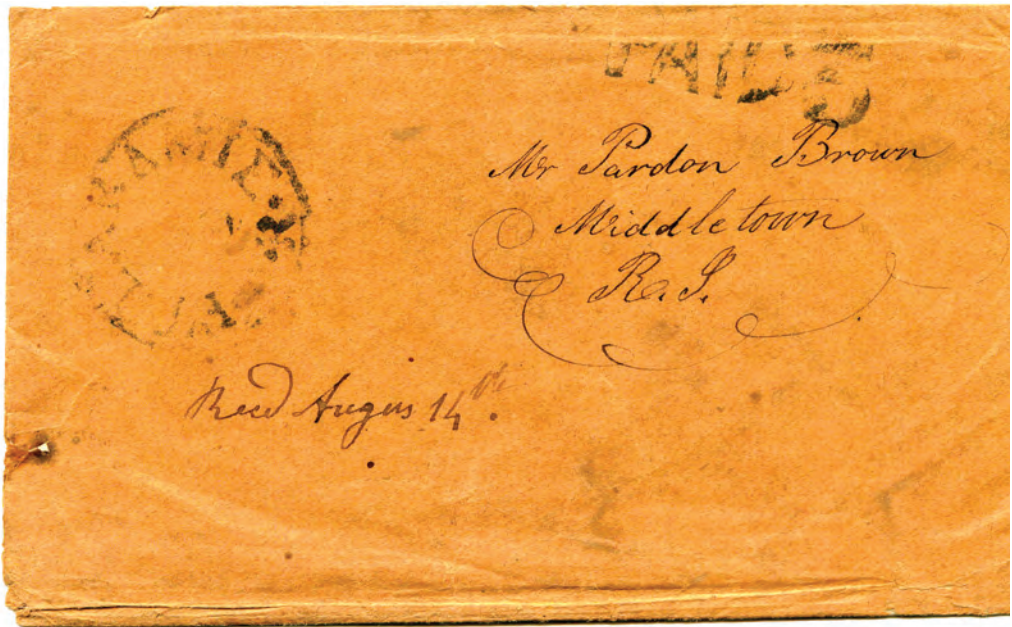 PAID
LARAMIE
Mr Pardon Brown
Middletown
R. I.
Recd Augus 14th.